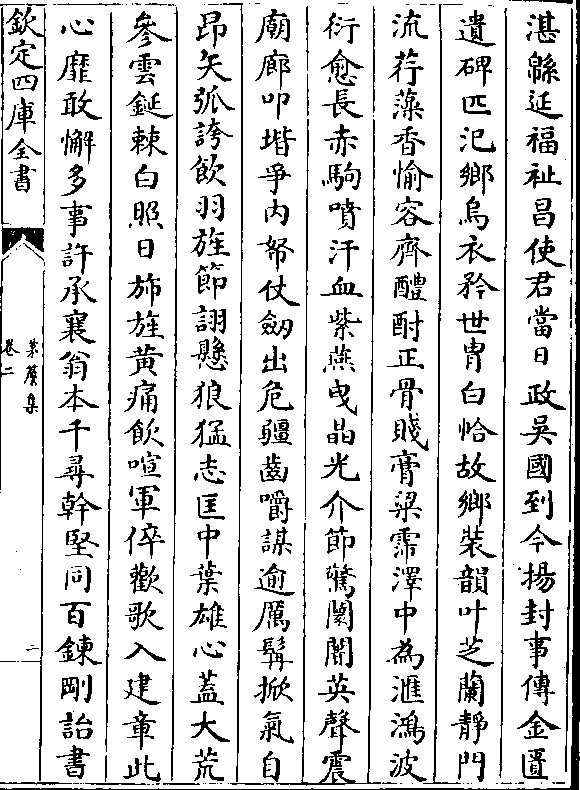 湛緜延福祉昌使君當日政吳國到今揚封事傳金匱
遺碑匹汜鄉烏衣矜世胄白恰故鄉裝韻叶芝蘭靜門
流荇藻香愉容齊醴酎正骨賤膏粱霈澤中為滙鴻波
衍愈長赤駒噴汗血紫燕曳晶光介節驚閽闇英聲震
廟廊叩堦爭內帑仗劒出危疆齒嚼謀逾厲髯掀氣自
昂矢弧誇飲羽旌節詡懸狼猛志匡中葉雄心蓋大荒
參雲鋋棘白照日斾旌黃痛飲喧軍倅歡歌入建章此
心靡敢懈多事許承襄翁本千尋幹堅同百鍊剛詒書
欽定四庫全書
卷二
集
二